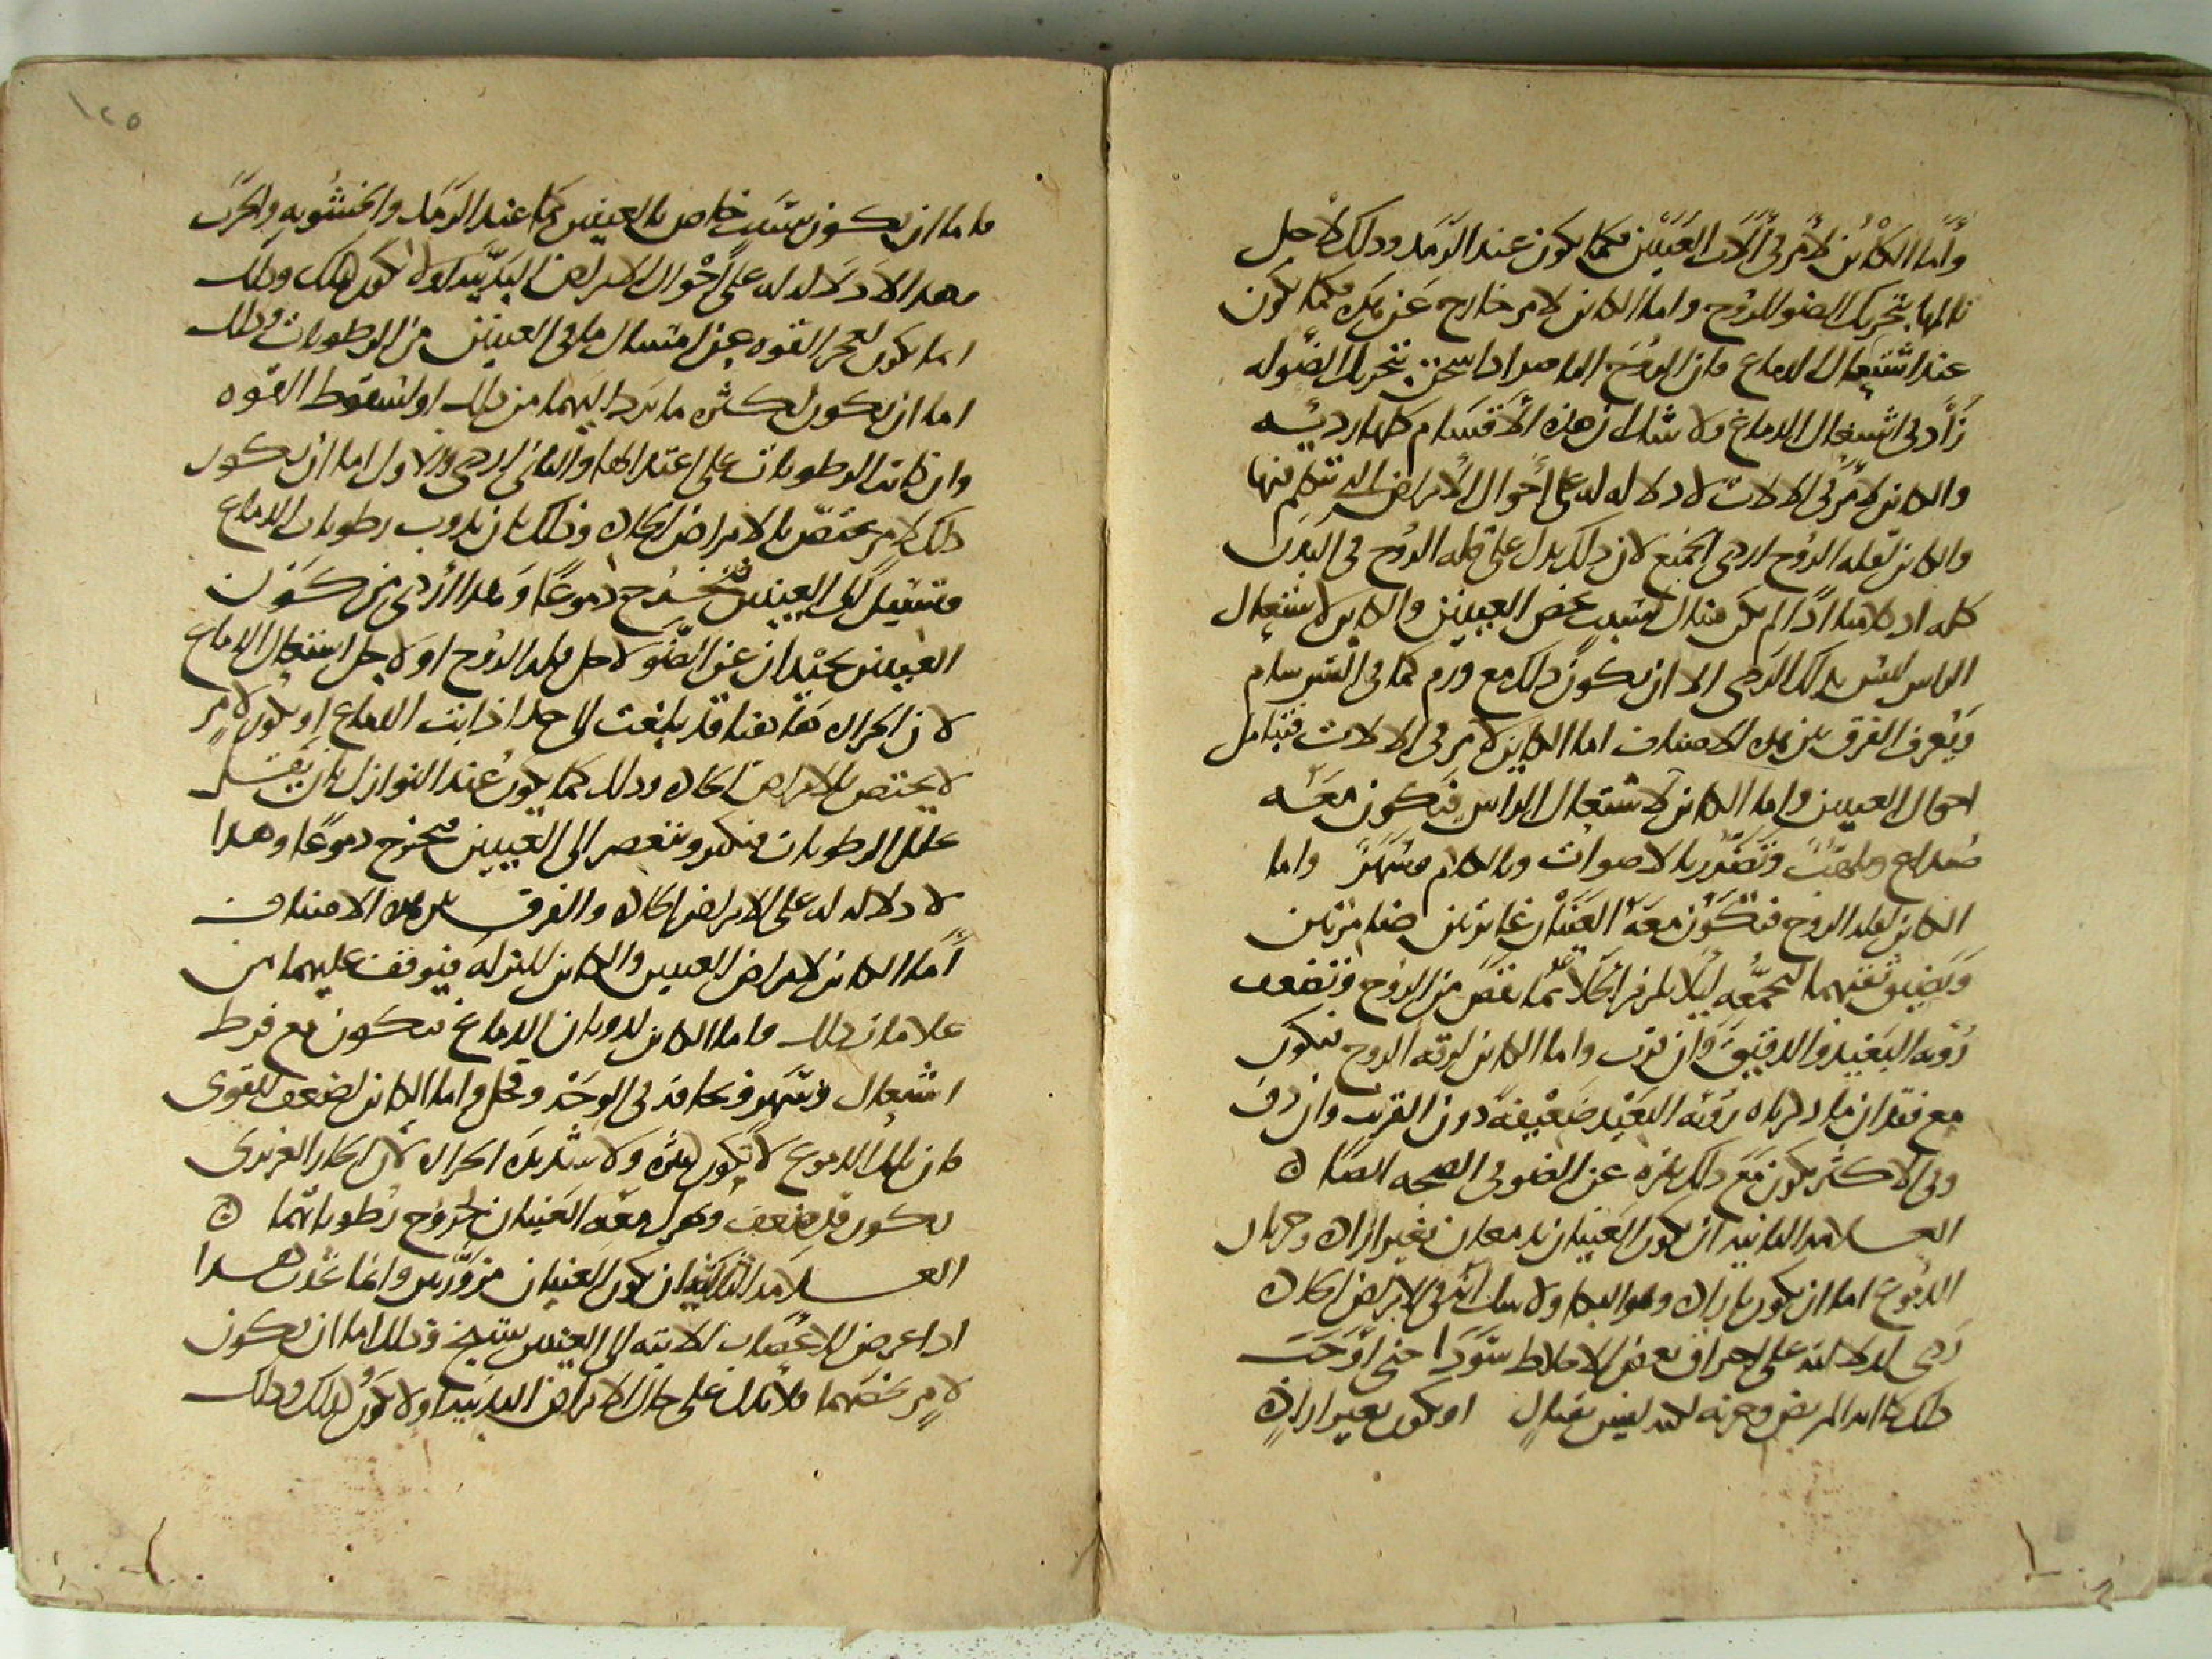 وأما الكائن لأمر في آلات العينين فكما يكون عند الرمد وذلك لأجل
تألمها بتحريك الضو للروح واما الكائن لامر خارج عن ذلك فكما يكون
عند اشتعال الدماغ فان الروح الباصر اذا سخن بتحريك الضو له
زاد في اشتعال الدماغ ولا شك ان هذه الاقسام كلها رديه
والكائن لأمر في الالات لا دلاله له على أحوال الأمراض التي نتكلم فيها
والكائن لقله الروح اردى الجميع لان ذلك يدل على قله الروح في البدن
كله اذ كلامنا اذا لم يكن هناك سبب يخص العينين والكائن لاشتعال
الراس ليس بذلك الردى الا ان يكون ذلك مع ورم كما في السرسام
ويعرف الفرق بين هذه الاصناف اما الكاين لامر في الالات فبتامل
احوال العينين واما الكائن لاشتعال الراس فيكون معه
صداع وتلهب وتضرر بالاصوات وبالكلام وسهر واما
الكائن لقله الروح فتكون معه العينان غايرتين ضامرتين
ويضيق ثقبهما لتجمعه ليلا يلزم الخلا مما نقص من الروح وتضعف
رؤيه البعيد والدقيق وان قرب واما الكائن لرقه الروح فيكون
مع فقدان ما ذكرناه رؤيه البعيد ضعيفة دون القريب وان دق
وفي الاكثر يكون مع ذلك نفره عن الضو في الصحه ايضا ه
العلامه الثانيه ان تكون العينان تدمعان بغير اراده وجريان
الدموع اما ان يكون باراده وهو البكا ولا شك انه في الامراض الحاده
ردى لدلالته على احراق بعض الاخلاط سودا حتى اوجبت
ذلك كآبه المريض وحزنه او يكون بغير اراده
فاما ان يكون بسبب خاص بالعينين كما عند الرمد والخشونه والجرب
وهذا لا دلاله له على احوال الامراض البدنيه او لا يكون كذلك وذلك
انما يكون لعجز القوه عن امساك ما في العينين من الرطوبات وذلك
اما ان يكون لكثره ما يرد اليهما من ذلك او لسقوط القوه
وان كانت الرطوبات على اعتدالها والثاني اردى والاول اما ان يكون
ذلك لامر مختص بالامراض الحاده وذلك بان يذوب رطوبات الدماغ
فتسيل الى العينين فتخرج دموعا وهذا أردى من كون
العينين تحيدان عن الضو لاجل قله الروح او لاجل اشتعال الدماغ
لان الحراره هاهنا قد بلغت الى حد اذابت الدماغ او يكون لامر
لا يختص بالامراض الحاده وذلك كما يكون عند النوازل بان
تلك الرطوبات فتكثر وتنعصر الى العينين فتخرج دموعا وهذا
لا دلاله له على الامراض الحاده والفرق بين هذه الاصناف
أما الكائن لامراض العينين والكائن للنزله فيوقف عليهما من
علامات ذلك واما الكائن لذوبان الدماغ فيكون مع فرط
اشتعال وسهر ونحافه في الوجه وقحل واما الكائن لضعف القوى
فان تلك الدموع لا تكون كثيره ولا شديده الحراره لان الحار الغريزى
يكون قد ضعف وتهزل معه العينان لخروج رطوباتهما ه
العلامه الثالثه ان تكون العينان مزورتين وانما يحدث هذا
اذا عرض للاعصاب الاتيه الى العينين تشنج وذلك اما ان يكون
لامر يخصهما فلا يدل على حال الامراض البدنيه او لا يكون كذلك وذلك
١٢٥